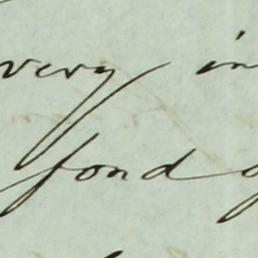 very in
fond